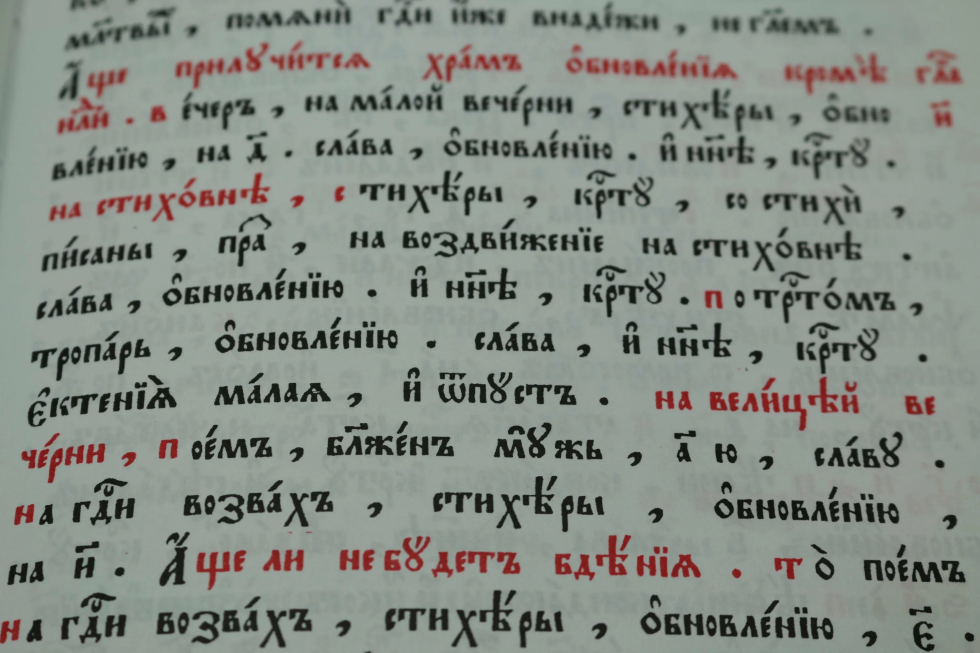 мл҃твы̑ , помѧнѝ гдⷭ҇и и҆́же внаде́жи , не гл҃емъ .
А҆́ще прилꙋчи́тсѧ хра́мъ ѡ҆бновле́нїѧ кромѣ̀ гла
нлⷣи . в е́черъ , на ма́лой вече́рни , стихѣ́ры , ѡ҆бно и҃
вле́нїю , на д҃ . сла́ва , ѡ҆бновле́нїю . и҆ нн҃ѣ , крⷭ҇тꙋ̀ .
на стихо́внѣ , с тихѣ́ры , крⷭ҇тꙋ̀ , со стихѝ ,
пи́саны , пра̑ , на воздви́женїе на стихо́внѣ .
сла́ва , ѡ҆бновле́нїю . и҆ нн҃ѣ , крⷭ҇тꙋ̀ . п о трⷭ҇то́мъ ,
тропа́рь , ѡ҆бновле́нїю . сла́ва , и҆ нн҃ѣ , крⷭ҇тꙋ̀ .
є҆ктенїѧ̀ ма́лаѧ , и҆ ѿпꙋстъ . на вели́цѣй ве
че́рни , п ое́мъ , бл҃же́нъ мꙋ́жь , а҃ ю , сла́вꙋ .
на гдⷭ҇и возва́хъ , стихѣ́ры , ѡ҆бновле́нїю ,
на и҃ . А҆́ще ли не бꙋ́детъ бдѣ́нїѧ . т о̀ пое́мъ
на гдⷭ҇и возва́хъ , стихѣ́ры , ѡ҆бновле́нїю , є҃ .